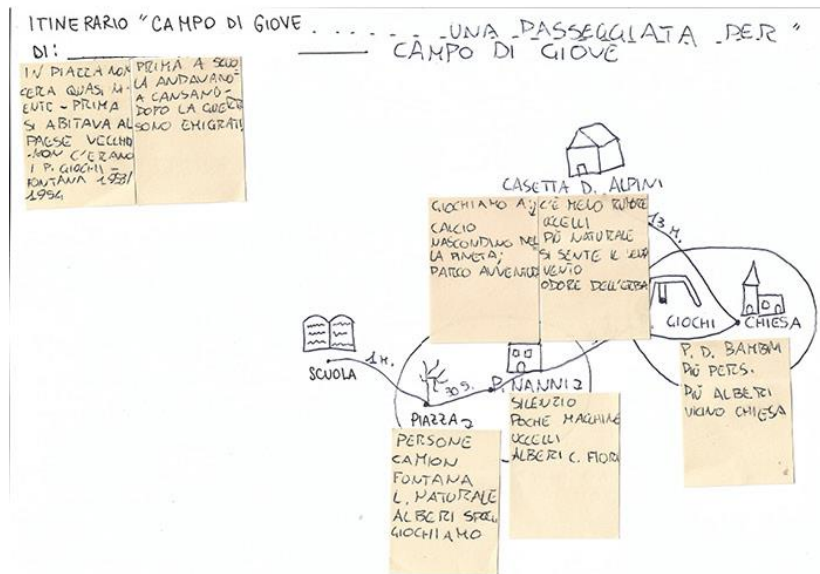 ITINERARIO "CAMPO DI GIOVE ....... UNA PASSEGGIATA PER "
DI: CAMPO DI GIOVE
IN PIAZZA NON
C'ERA QUASI NI-
ENTE - PRIMA
SI ABITAVA AL
PAESE VECCHIO
- NON C'ERANO
I P. GIOCHI -
FONTANA 1953/
1954
PRIMA A SCUO
LA ANDAVANO
A CANSANO -
DOPO LA GUERRA
SONO EMIGRATI
CASETTA D. ALPINI
GIOCHIAMO A:
CALCIO
NASCONDINO NEL
LA PINETA;
PARCO AVVENTUR
C'È MENO RUMORE
UCCELLI
PIÙ NATURALE
SI SENTE IL
VENTO
ODORE DELL'ERBA
13 M.
GIOCHI
CHIESA
P. D. BAMBINI
PIÙ PERS.
PIÙ ALBERI
VICINO CHIESA
SCUOLA
1 M.
30 S.
P. NANNI
PIAZZA
SILENZIO
POCHE MACCHINE
UCCELLI
ALBERI C. FIORI
PERSONE
CAMION
FONTANA
L. NATURALE
ALBERI SPOGL
GIOCHIAMO